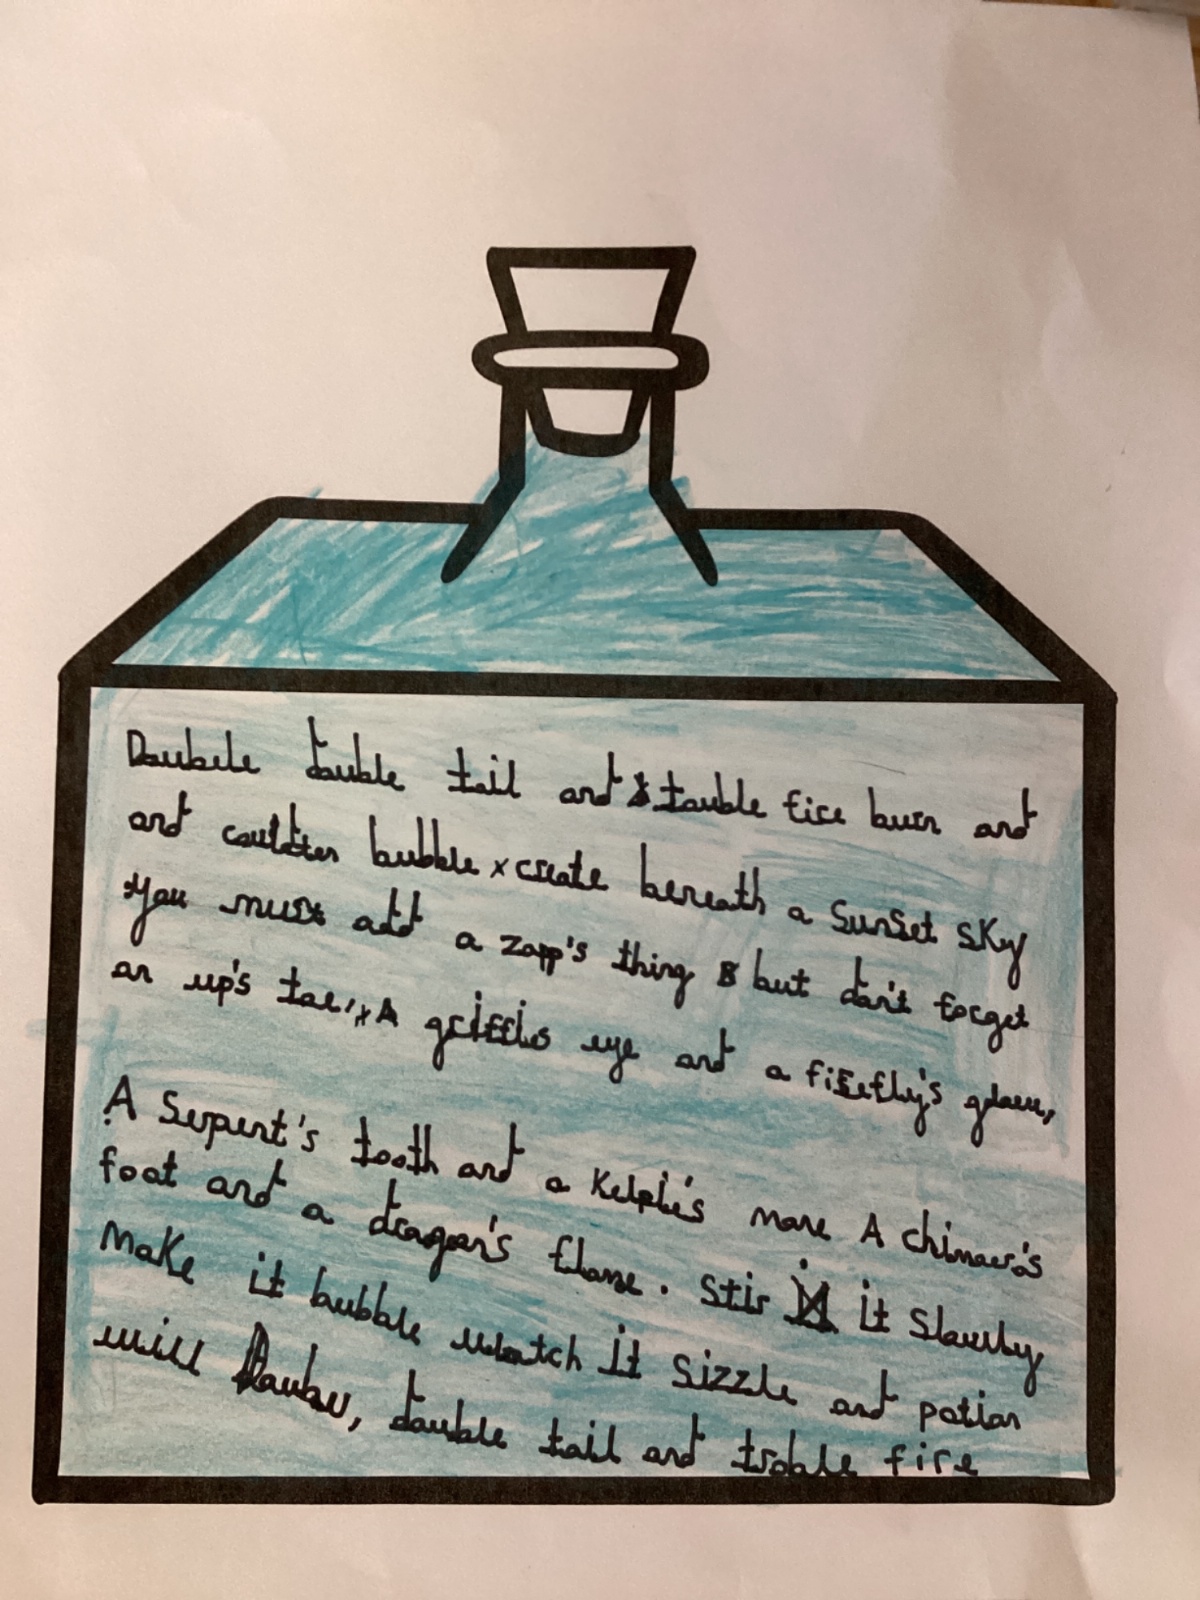 Doubele double tail and touble fire burn and
and couldten bubble create beneath a Sunset sky
you must add a zapp's thing but don't forget
an up's tae, A griffis eye and a firefly's glow,
A Serpent's tooth and a Kelpie's mane A chimaera's
foot and a dragon's flame. Stir it Slowly
Make it bubble watch it Sizzle and potion
will Double, double tail and troble fire